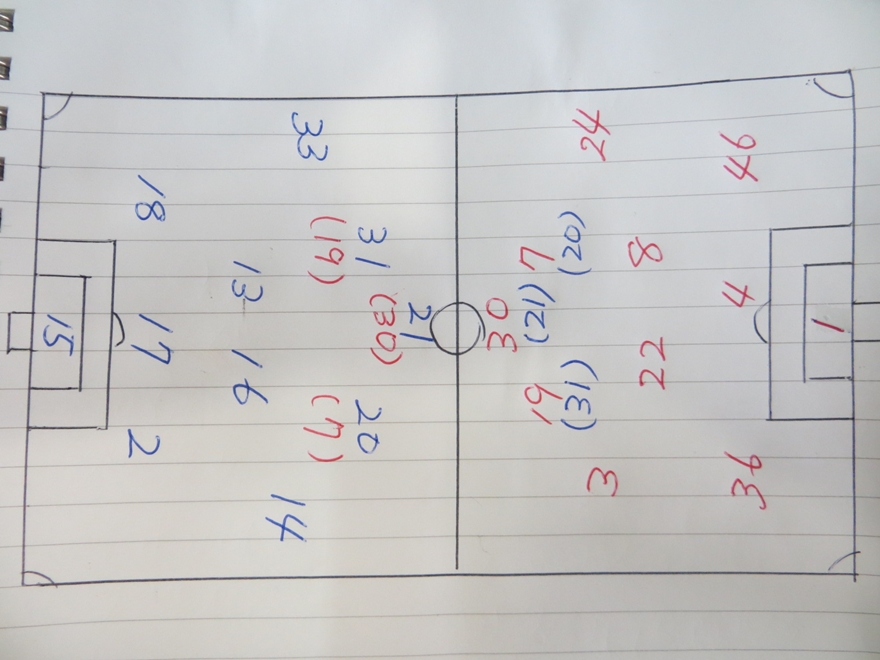 33
18
31
(19)
13
21
(30)
15
17
16
20
(7)
2
14
24
46
7
(20)
8
30
(21)
4
1
22
19
(31)
3
36